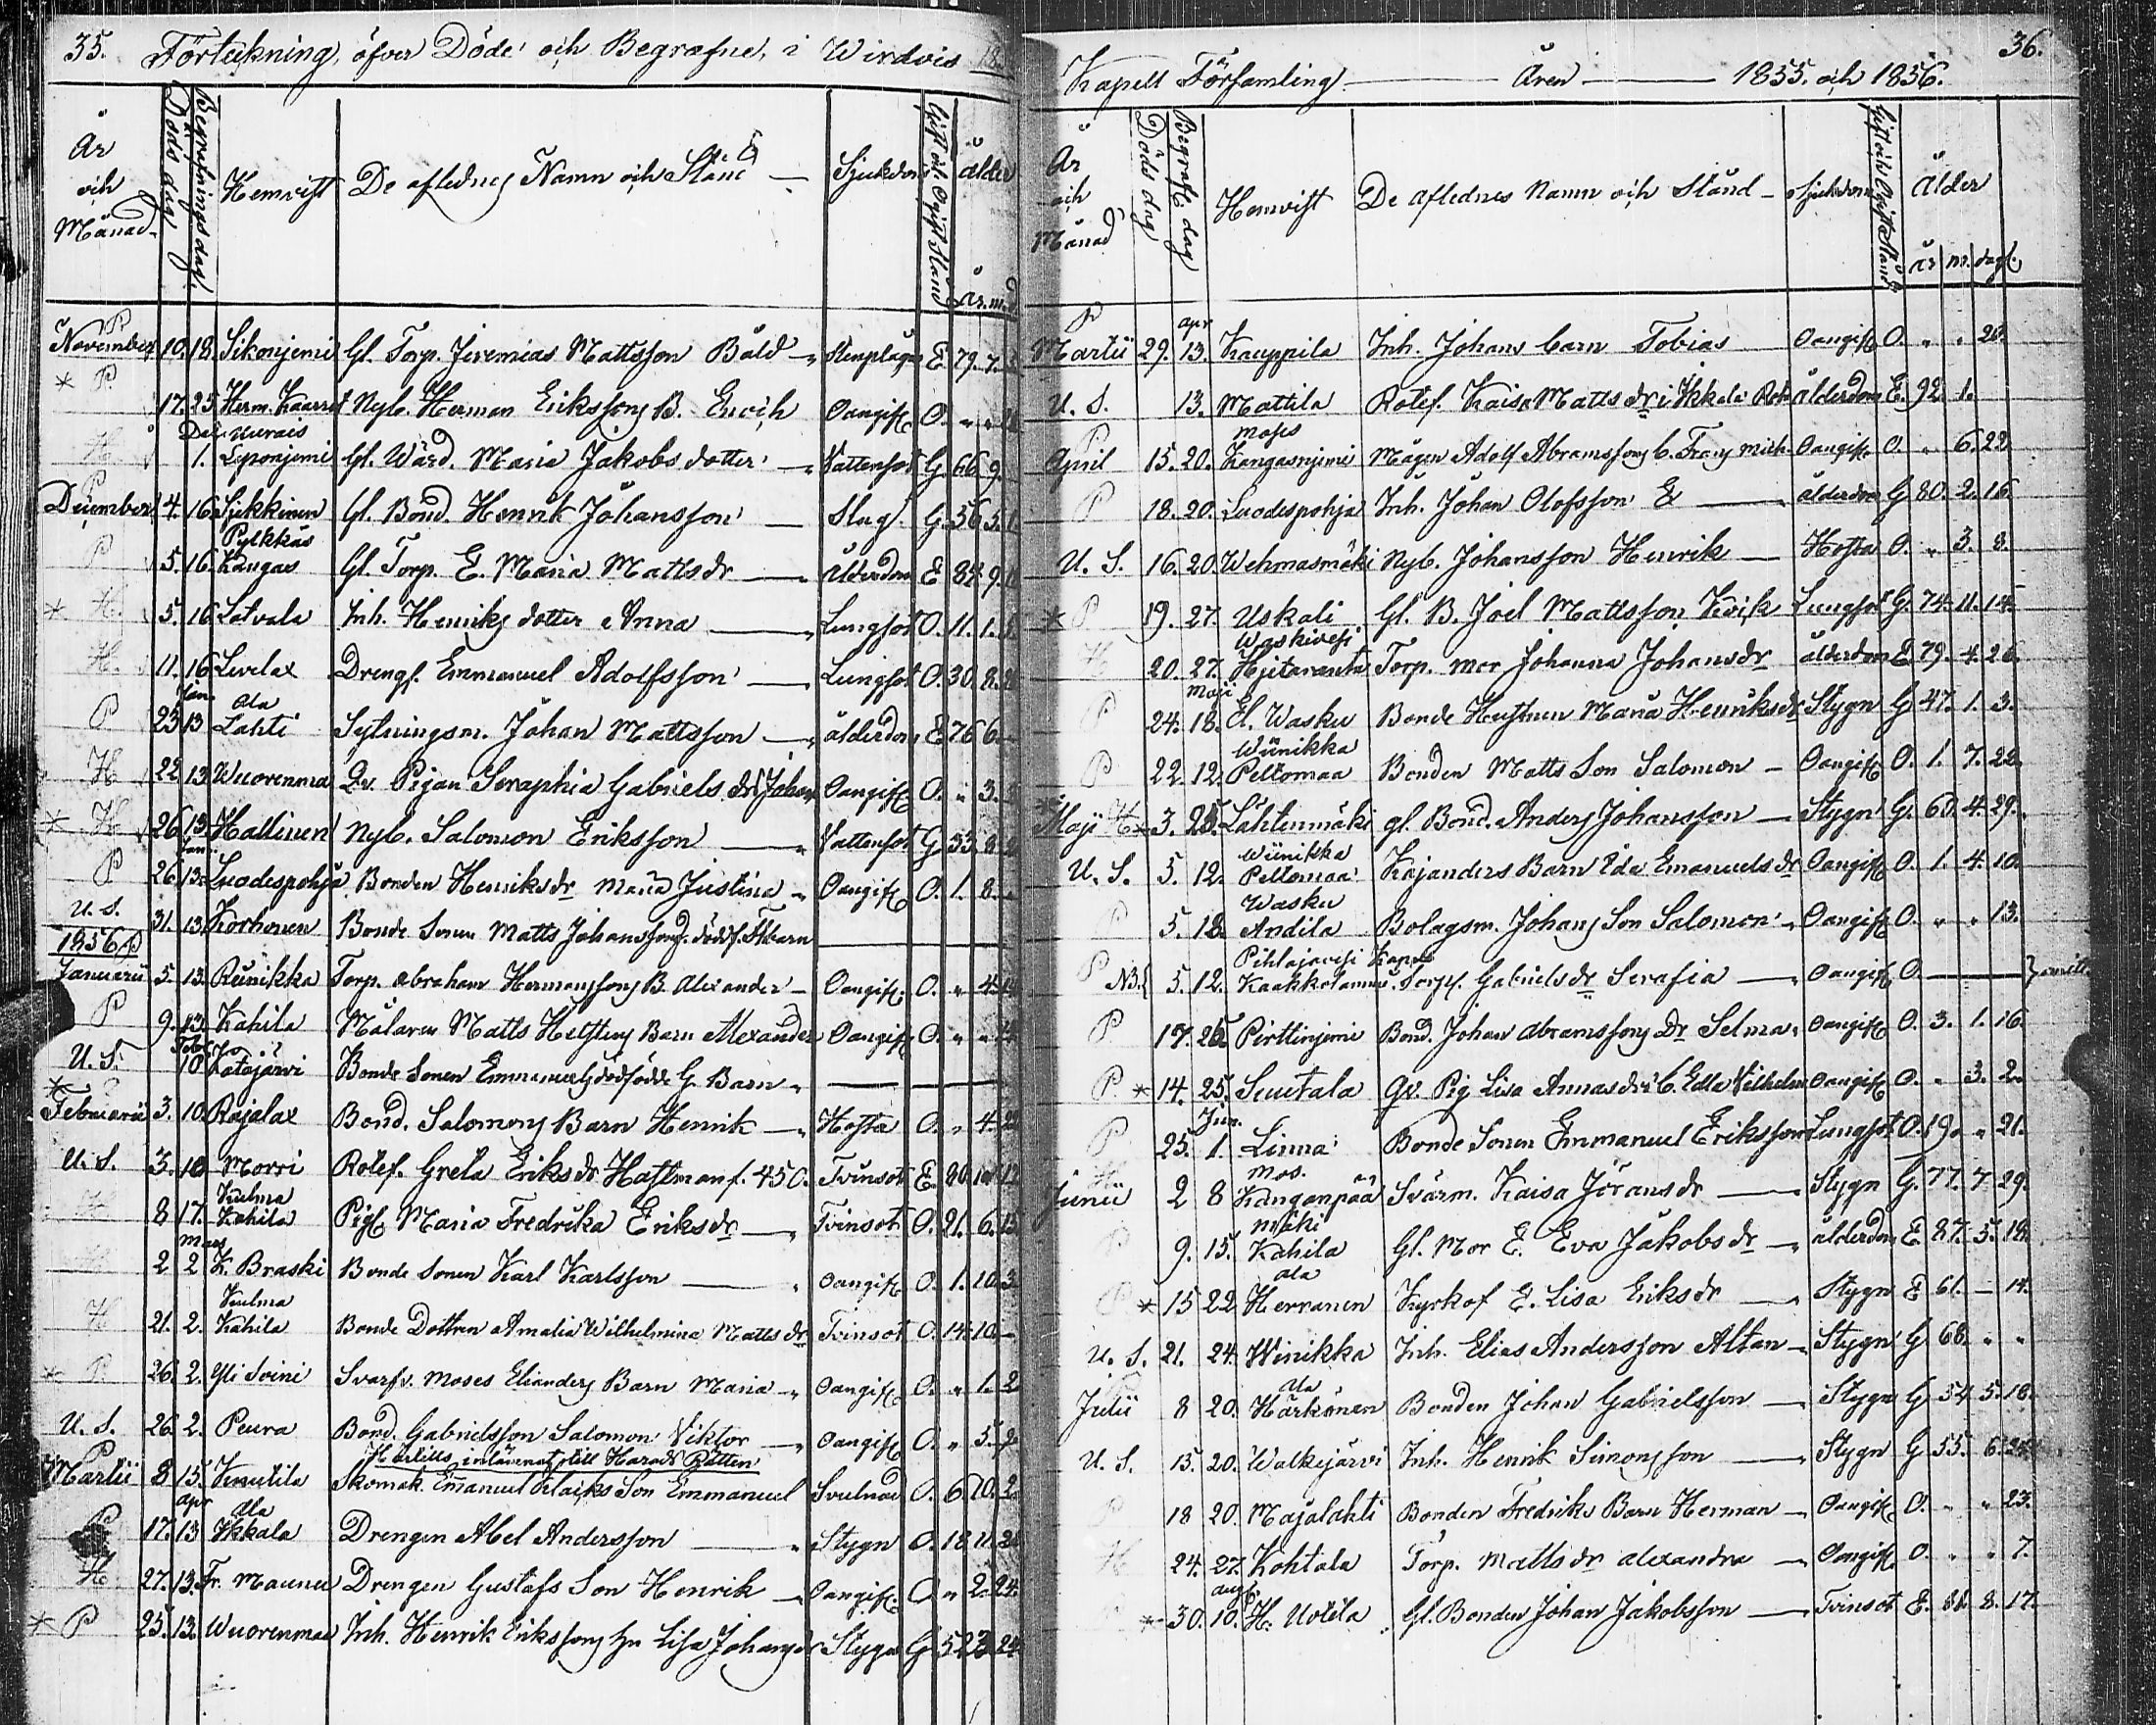 35. Förteckning, öfver Döde och Begrafne, i Wirdois
År och Månad
Döds dag
Begrafnings dag
Hemvist
De aflednes Namn och Stånd
Sjukdom
Gift och Ogift Stånd
ålder
år. m. d
P
November 10. 18. Sikonjemi Gl. Torp. Jeremias Mattsson Båld Stenplågn E 79. 7.
* P. 17. 25. Herm. Kaarre Nyb. Herman Erikssons B. Enoch Oangifl. O. " "
H Dec. 1. Leponjemi Gl. Wärd. Maria Jakobs dotter Vattensot G. 66 9.
P
December 4. 16. Siekkinen Gl. Bond. Henrik Johansson Slag. G. 56 5.
P 5. 16. Pylkkäs Kangas Gl. Torp. E. Maria Mattsdr ålderdom E 9.
* H. 5. 16. Latvala Inh. Henriks dotter Anna Lungsot O. 11. 1.
H. 11. 16 Levelax Drengs. Emmanuel Adolfsson Lungsot O. 30. 8.
P 23 Jan. 13 Ala Lahti Sytningsm. Johan Mattsson ålderdom E 76 6.
H 22. 13. Wuorenmaa Qv. Pigan Seraphia Gabriels dr Johan Oangifl. O. " 3.
* H 26 13. Hallinen Nyb. Salomon Eriksson Vattensot G 53. 8.
P 26. Jan. 13. Luodespohja Bonden Henriksdr Maria Justina Oangifl. O. 1. 8.
U. S. 31. 13. Korhonen Bonde Sonen Matts Johanssons dödf. Flbarn
1856 P
Januarii 5. 13. Reinikka Torp. Abraham Hermanssons B. Alexander Oangifl. O. " 4.
P 9. 13. Kahila Målaren Matts Helstens Barn Alexander Oangifl. O. " "
U. S. Febr. 10 Latojärvi Bonde Sonen Emmanuels dödfödde G. Barn
*
Februarii 3. 10. Rajalax Bond. Salomons Barn Henrik Hosta O. " 4.
U. S. 3. 10 Morri Rotef. Greta Eriksdr Hastman f. 450. Tvinsot E. 80. 10
H 8 17. Kulma Kahila Pig. Maria Fredrika Eriksdr Tvinsot O. 21. 6. 13
H 2 Mars 2 K. Braski Bonde Sonen Karl Karlsson Oangifl. O. 1. 10. 3
H 21. 2. Kulma Kahila Bonde Dottren Amalia Wilhelmina Mattsdr Tvinsot O. 14. 10.
* P 26. 2. Yli Soini Svarfv. Moses Elianders Barn Maria Oangifl. O. " 1. 2
U. S. 26. 2. Peura Bond. Gabrielsson Salomon Viktor Oangifl. O. " 5.
P
Martii 8 15. Knutila Skomak. Emanuel Son Emmanuel Svulnad O. 6. 10. 2
17. Apr 13 Ala Ikkala Drengen Abel Andersson Stygn O. 18 11.
H 27. 13. Fr. Maunu Drengen Gustafs Son Henrik Oangifl. O " 2. 24.
* P 25. 13. Wuorenmaa Inh. Henrik Erikssons hu Lisa Johansdr Stygn G 52 24
36.
Kapell Församling Åren 1855. och 1856.
År och Månad
Döds dag
Begrafn. dag
Hemvist
De aflednes Namn och Stånd
Sjukdom
Gift och Ogift Stånd
Ålder
år m. dag.
P
Martii 29. Apr 13. Kauppila Inh. Johans barn Tobias Oangifl O. " " 28.
U. S. 13. Mattila Rotef. Kaisa Mattsdr i Ikkala Rote ålderdom E. 92. 1.
P
April 15. 20. Moses Kangasnjemi Mågen Adolf Abramssons b. Frans Mich Oangifl. O. " 6. 22
P 18. 20. Luodespohja Inh. Johan Olofsson E ålderdom G 80. 2. 16.
U. S. 16. 20. Wehmasmäki Nyb. Johansson Henrik Hosta O. " 3. 8.
* P 19. 27. Uskali Gl. B. Joel Mattsson Lungsot G. 74. 11. 14.
H 20. 27. Waskivesi Hjetaranta Torp. mor Johanna Johansdr ålderdom E 79. 4. 26.
P 24. Maji 18. El. Wasku Bonde Hustrun Maria Henriksdr Stygn G 47. 1. 3.
P 22. 12. Wiinikka Peltomaa Bonden Matts Son Salomon Oangifl O. 1. 7. 22.
*
Maji H 3. 25. Lahtenmäki gl. Bond. Anders Johansson Stygn G. 60. 4. 29.
U. S. 5. 12. Wiinikka Peltomaa Kajanders Barn Ida Emanuelsdr Oangifl O. 1. 4. 10.
P 5. 12. Wasku Andila Bolagsm. Johans Son Salomon Oangifl O. " " 13.
P NB. 5. 12. Pihlajavesi Kapell Kaakkolammi Torp. Gabrielsdr Serafia Oangifl O.
P. 17. 25 Pirttinjemi Bond. Johan Abramssons Dr Selma Oangifl O. 3. 1. 16.
P. * 14. 25. Suutala Qv. Pig Lisa Annasdrs b. Edla Vilhelm Oangifl O. " 3. 2.
P 25. Jun. 1. Linna Bonde Sonen Emmanuel Eriksson Lungsot O. 19. " 21.
H
Junii 2 8 Mos. Kanganpää Svärm. Kaisa Jöransdr Stygn G. 77. 7 29.
P 9. 15. Mäki Kahila Gl. Mor E. Eva Jakobsdr ålderdom E. 87. 5. 18.
P * 15 22 Ala Herranen Kyrkof E. Lisa Eriksdr Stygn E 61. — 14.
U. S. 21. 24. Winikka Inh. Elias Andersson Altan Stygn G 68. " "
Julii 8 20. Ala Härkönen Bonden Johan Gabrielsson Stygn G 54. 5. 18.
U. S. 15. 20. Walkejärvi Inh. Henrik Simonsson Stygn G 55. 6.
P 18 20. Majalahti Bonden Fredriks Barn Herman Oangifl. O. " " 23.
H 24. 27. Kohtala Torp. Mattsdr Alexandra Oangifl. O. " " 7.
* 30. Aug. 10. H. Uotila Gl. Bonden Johan Jakobsson Tvinsot E. 81. 8. 17.